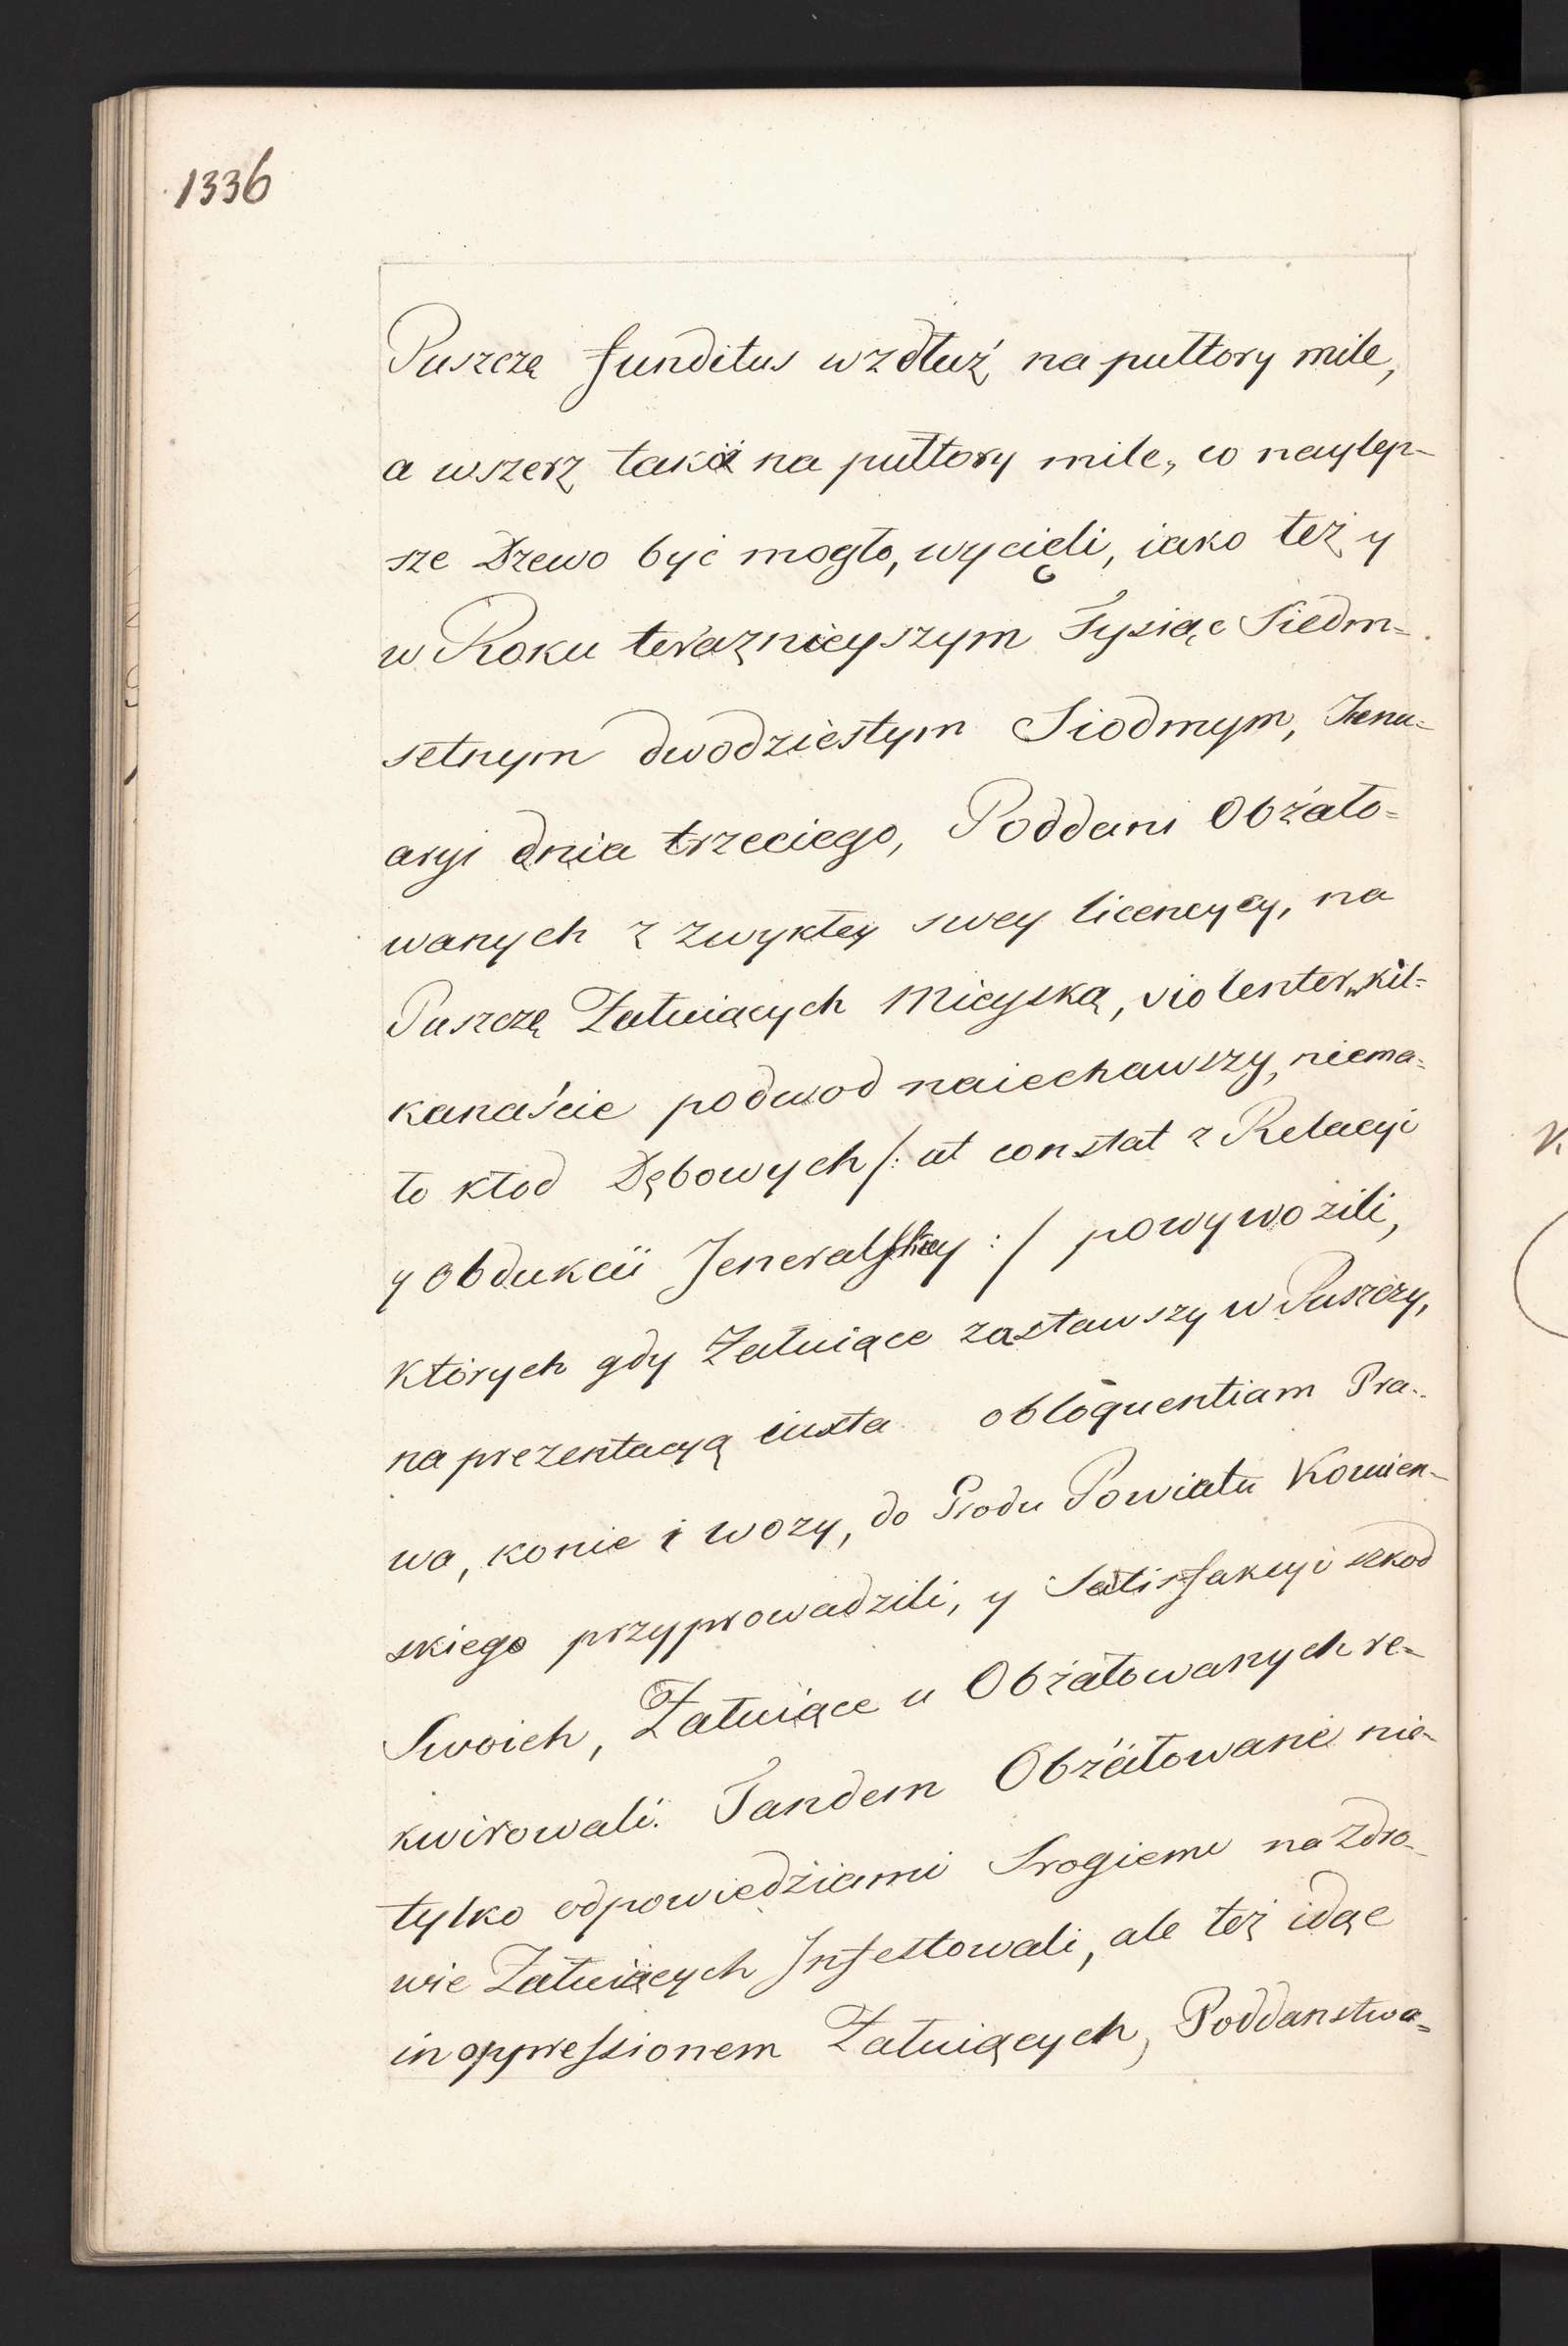 1336
Puszczą funditus wzdłuż na pułtory mile,
a wszerz taka na pułtory mile, co naylep-
sze Drzewo być mogło, wycięli, iako też y
w Roku teraznieyszym Tysiąc Siedm=
setnym dwodziestym Siodmym, Jenu=
aryi dnia trzeciego, Poddani Obżało=
wanych z zwykłey swey licencyey, na
Puszczą Żałuiących Mieyską, violenter kil=
kanaście podwod naiechawszy, niema=
ło kłod Dębowych /: ut constat z Relacyi
y Obdukcii Jeneralskiey :/ powywozili,
których gdy Żałuiące zastawszy w Puszczy,
na prezentacyą iuxta obloquentiam Pra-
wa, konie i wozy, do Grodu Powiatu Kowien-
skiego przyprowadzili, y Satisfakcyi szkod
Swoich, Żałuiące u Obżałowanych re-
kwirowali. Tandem Obżałowane nie-
tylko odpowiedziami Srogiemi na Zdro-
wie Żałuiących Infestowali, ale też idąc
in oppressionem Żałuiących, Poddanstwa=